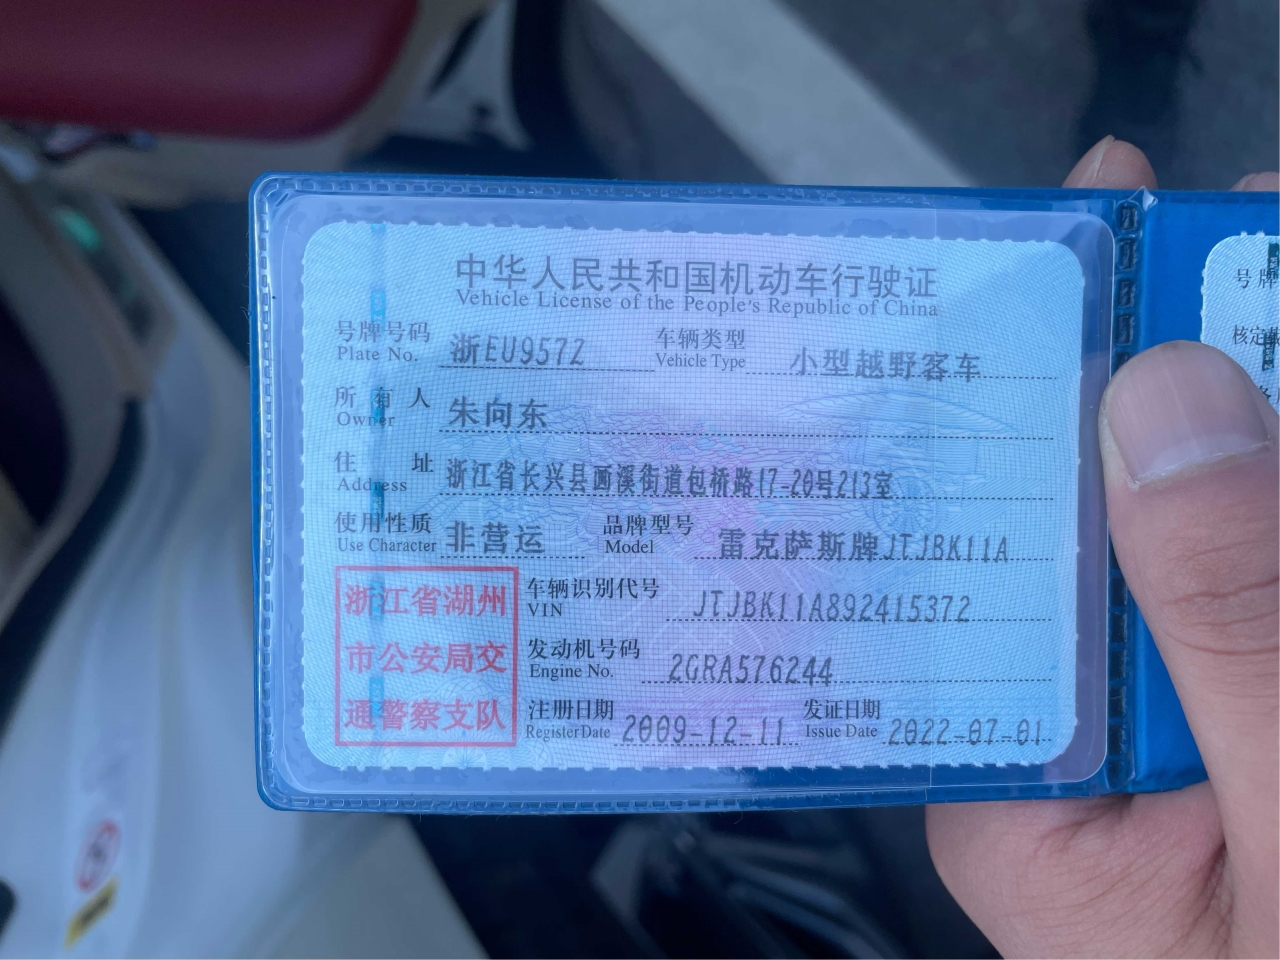 中华人民共和国机动车行驶证
Vehicle License of the People's Republic of China
号牌号码 浙EU957Z 车辆类型 小型越野客车
Plate No. Vehicle Type
所有人 朱向东
Owner
住址 浙江省长兴县画溪街道包桥路17-20号213室
Address
使用性质 非营运 品牌型号 雷克萨斯牌JTJBK11A
Use Character Model
浙江省湖州
市公安局交
通警察支队
车辆识别代号 JTJBK11A892415372
VIN
发动机号码 2GRA576244
Engine No.
注册日期 2009-12-11 发证日期 2022-07-01
Register Date Issue Date
号牌
核定